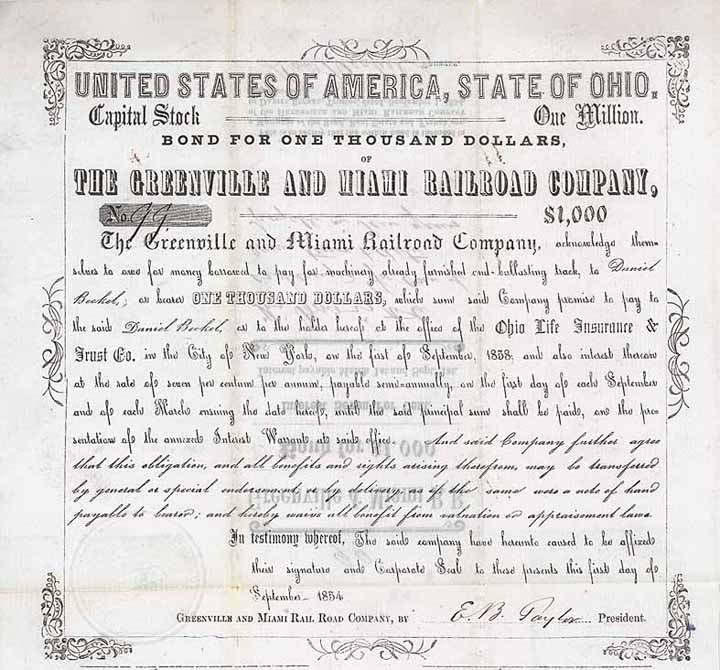 UNITED STATES OF AMERICA, STATE OF OHIO.
Capital Stock One Million.
BOND FOR ONE THOUSAND DOLLARS,
OF
THE GREENVILLE AND MIAMI RAILROAD COMPANY,
No. 99 $1,000
The Greenville and Miami Railroad Company, acknowledge them-
selves to owe for money borrowed to pay for machinery already furnished and ballasting track, to Daniel
Beckel, or bearer ONE THOUSAND DOLLARS, which sum said Company promise to pay to
the said Daniel Beckel, or to the holder hereof at the office of the Ohio Life Insurance &
Trust Co. in the City of New York, on the first of September, 1858; and also interest thereon
at the rate of seven per centum per annum, payable semi-annually, on the first day of each September
and of each March ensuing the date hereof, until the said principal sum shall be paid, on the pre-
sentation of the annexed Interest Warrant at said office. And said Company further agree
that this obligation, and all benefits and rights arising therefrom, may be transferred
by general or special endorsement or by delivery as if the same were a note of hand
payable to bearer; and hereby waive all benefit from valuation or appraisement laws.
In testimony whereof, The said company have hereunto caused to be affixed
their signature and Corporate Seal to these presents this first day of
September 1854
GREENVILLE AND MIAMI RAIL ROAD COMPANY, BY E. B. Taylor President.